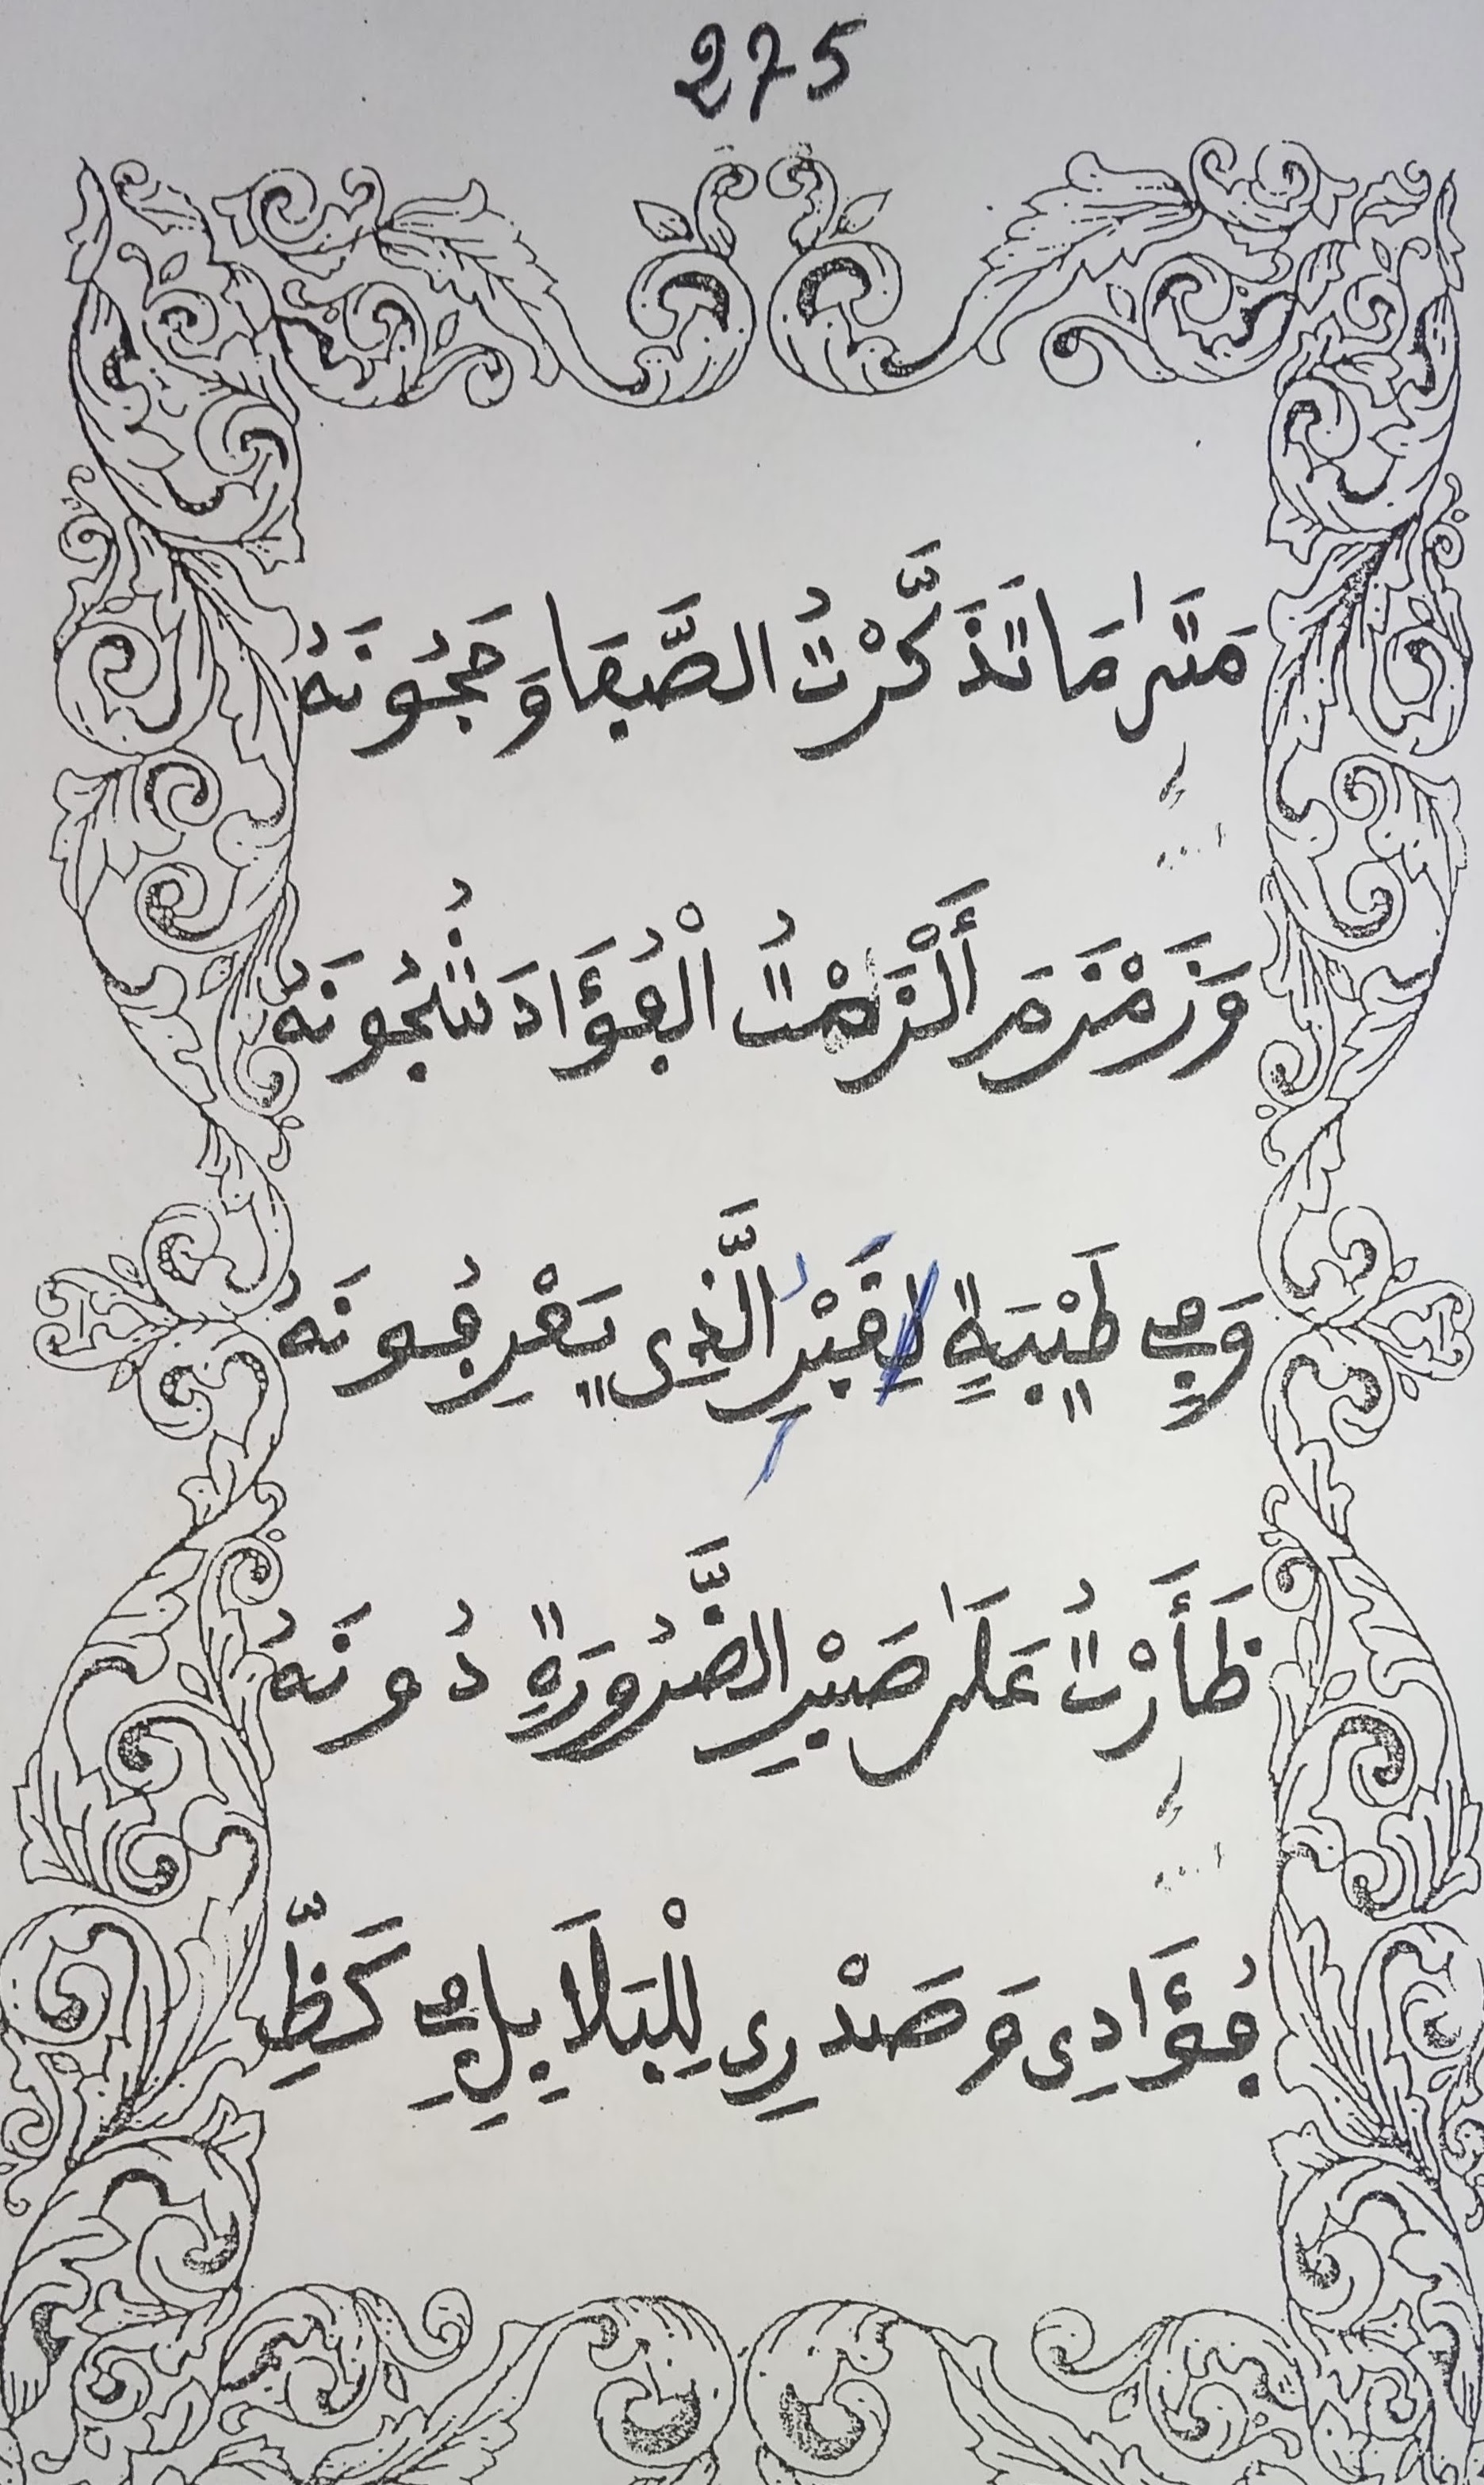 275
مَتَىٰ مَا تَذَكَّرْتُ الصَّفَا وَحَجُونَهُ
وَزَمْزَمَ أَلْزَمْتُ الْفُؤَادَ شُجُونَهُ
وَفِي طَيْبَةٍ لِقَبْرِ الَّذِي يَعْرِفُونَهُ
ظَأَرْتُ عَلَىٰ صَبْرِ الضَّرُورَةِ دُونَهُ
فُؤَادِي وَصَدْرِي لِلْبَلَابِلِ فِي كَظِّ